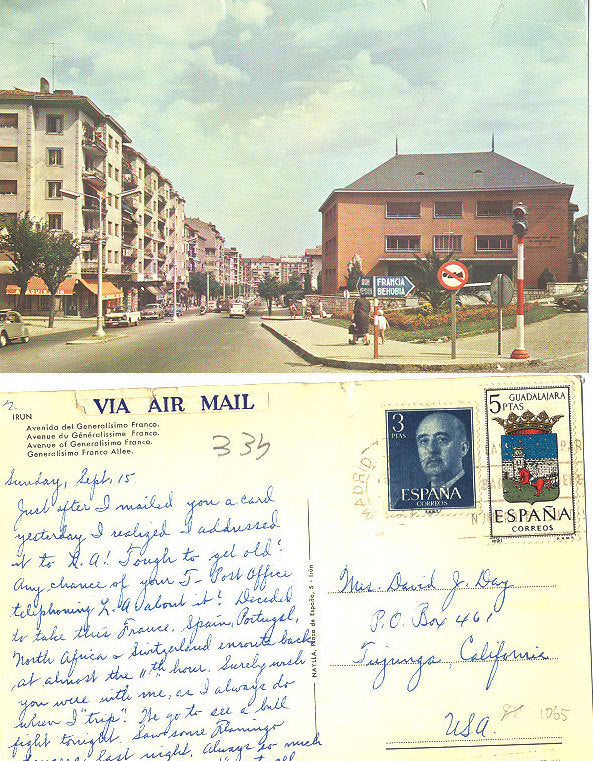 FRANCIA
BEHOBIA
VIA AIR MAIL
IRUN
Avenida del Generalísimo Franco.
Avenue du Généralissime Franco.
Avenue of Generalisimo Franco.
Generalisimo Franco Allee.
335
Sunday, Sept. 15
Just after I mailed you a card
yesterday I realized I addressed
it to L.A! Tough to get old!
Any chance of your T- Post Office
telephoning L.A about it? Decided
to take this France, Spain, Portugal,
North Africa & Switzerland enroute back
at almost the 11th hour. Surely wish
you were with me, as I always do
when I "trip". We go to see a bull
fight tonight. Saw some Flamingo
last night. Always so much
NAYLLA, Plaza de España, 5 - Irún
3
PTAS
ESPAÑA
CORREOS
5
PTAS
GUADALAJARA
ESPAÑA
CORREOS
MADRID
Mrs. David J. Day
P.O. Box 461
Tujunga, California
USA.
1055